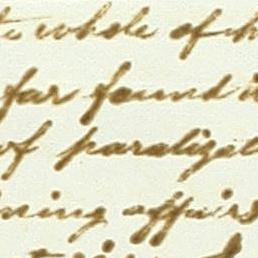 whole of
far found
of paraliza
ning affairs